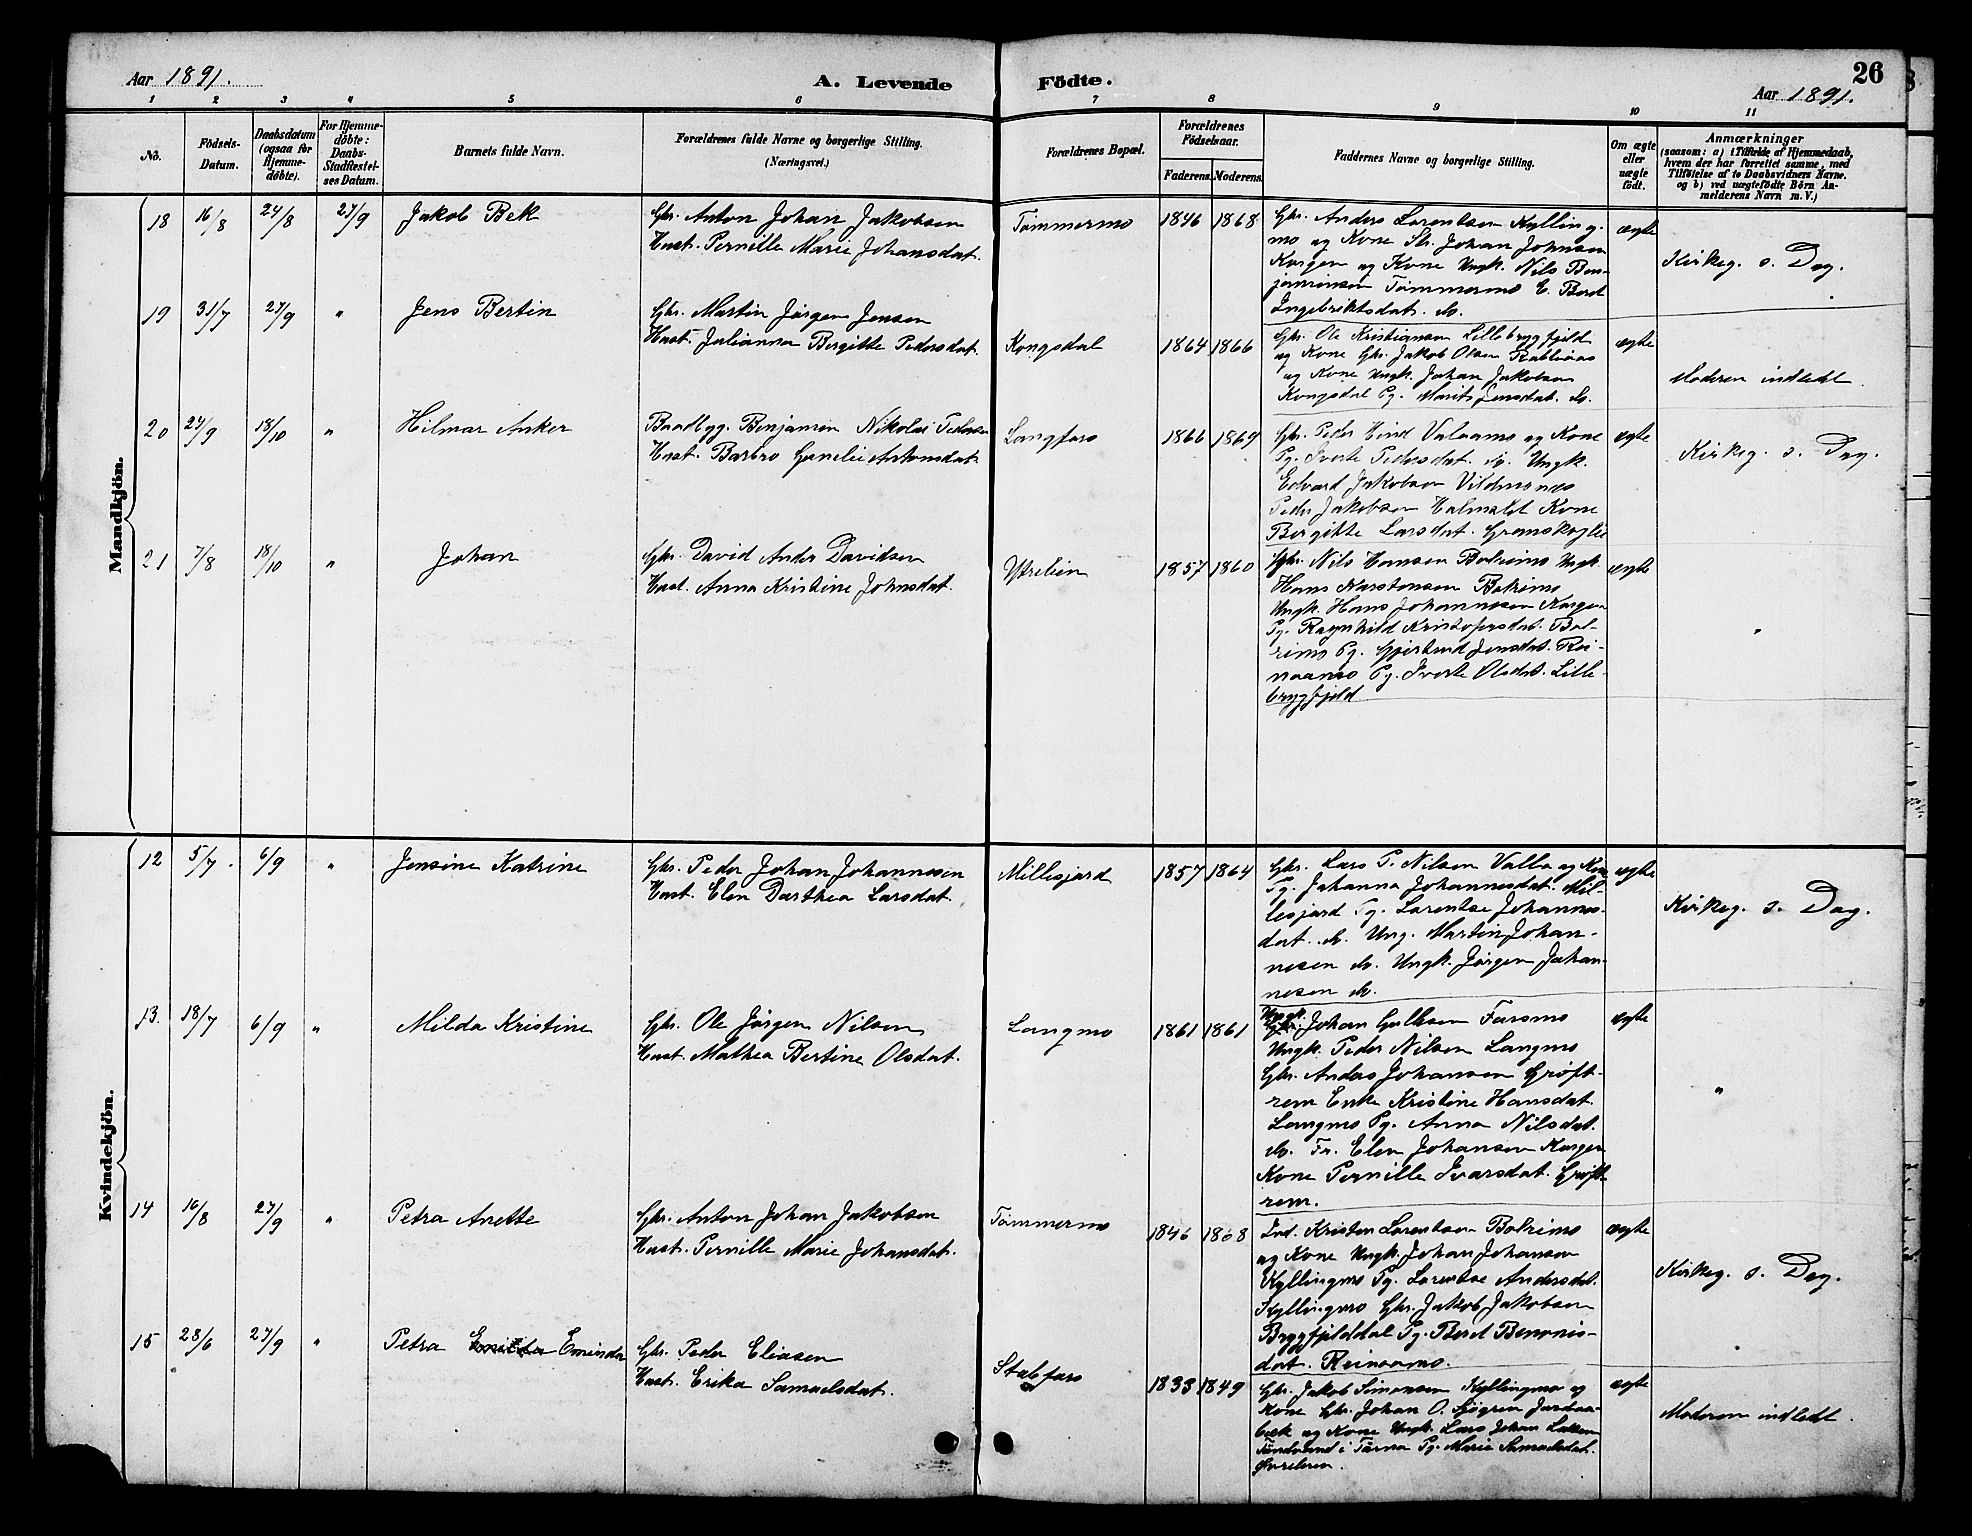 Aar 1891. A. Levende Födte. Aar 1891. 26
1 2 3 4 5 6 7 8 9 10 11
No. Födsels-Datum. Daabsdatum (ogsaa for Hjemme-döbte). For Hjemme-döbte: Daabs-Stadfæstel-ses Datum. Barnets fulde Navn. Forældrenes fulde Navne og borgerlige Stilling. (Næringsvei.) Forældrenes Bopæl. Forældrenes Födselsaar. Faderens. Moderens. Faddernes Navne og borgerlige Stilling. Om ægte eller uægte födt. Anmærkninger (saasom: a) i Tilfælde af Hjemmedaab, hvem der har forrettet samme, med Tilföielse af to Daabsvidners Navne. og b) ved uægtefödte Börn An-melderens Navn m. V.)
Mandkjön.
18 16/8 24/8 27/9 Jakob Bek
Gbr. Anton Johan Jakobsen
Hust. Pernille Marie Johansdat.
Tømmermo 1846 1868
Gbr. Anders Lorentsen Kylling-
mo og Kone Sbr. Johan Johnsen
Kargen og Kone Ungk. Nils Ben-
jaminsen Tømmermo E. Berit
Ingebriktsdat. do.
ægte
Kirkeg. s. Dag.
19 31/7 27/9 " Jens Bertin
Gbr. Martin Jørgen Jensen
Hust. Julianna Bergitte Pedersdat.
Kongsdal 1864 1866
Gbr. Ole Kristiansen Lillebryggfjeld
og Kone Gbr. Jakob Olsen
og Kone Ungk. Johan Jakobsen
Kongsdal Pg. Marit Jensdat. do.
ægte
Moderen indledt.
20 24/9 18/10 " Hilmar Anker
Baadbyg. Benjamin Nikolai Pedersen
Hust. Barbro Antonsdat.
Langfors 1866 1869
Gbr. Peder Hind og Kone
Pg. Sverte Pedersdat. do. Ungk.
Edvard Jakobsen Vildmones
Peder Jakobsen Kone
Bergitte Larsdat.
ægte
Kirkeg. s. Dag.
21 7/8 18/10 " Johan
Gbr. David Ander Davidsen
Hust. Anna Kristine Johnsdat.
Ytrelien 1857 1860
Gbr. Nils Hansen Bolrimo Ungk.
Hans Karstensen Bolrimo
Ungk. Hans Johannesen Kargen
Pg. Ragnhild Kristofersdat. Bol-
rimo Pg. Gjertrud Jensdat. Rei-
naamo Pg. Sverte Olsdat. Lille-
bryggfjeld
ægte
"
Kvindekjön.
12 5/7. 6/9 " Jensine Katrine
Gbr. Peder Johan Johannesen
Hust. Elen Darthea Larsdat.
Millesjord 1857 1864
Gbr. Lars P. Nilsen Valla og Kone
Pg. Johanna Johannesdat. Mil-
lesjord Pg. Lorentse Johannes-
dat. do. Ung. Martin Johan-
nesen do. Ungk. Jørgen Johan-
nesen do.
ægte
Kirkeg. s. Dag.
13. 18/7 6/9 " Milda Kristine
Gbr. Ole Jørgen Nilsen
Hust. Mathea Bertine Olsdat.
Langmo 1861 1861
Ungk. Johan Gulliksen Forsmo
Ungk. Peder Nilsen Langmo
Gbr. Anders Johansen Grøft-
rem Enke Kristine Hansdat.
Langmo Pg. Anna Nilsdat.
do. Fr. Elen Johansen Kargen
Kone Pernille Ivarsdat. Grøft-
rem.
ægte
"
14 16/8 27/9 " Petra Anette
Gbr. Anton Johan Jakobsen
Hust. Pernille Marie Johansdat.
Tømmermo 1846 1868
Ind. Kristen Lorentsen Bolrimo
og Kone Ungk. Johan Johansen
Kyllingmo Pg. Lorentse Andersdat.
Kyllingmo Gbr. Jakob Jakobsen
Bryggfjelddal Pg. Berit Benonis-
dat. Reinaamo.
ægte
Kirkeg. s. Dag.
15 28/6 27/9 " Petra Emilda Eminda
Gbr. Peder Eliasen
Hust. Erika Samuelsdat.
Stabfors 1833 1849
Gbr. Jakob Simonsen Kyllingmo og
Kone Gbr. Johan O. Sjögren
bæk og Kone Ungk. Lars Johan
i Tärna Pg. Marie Samuelsdat.
ægte
Moderen indledt.